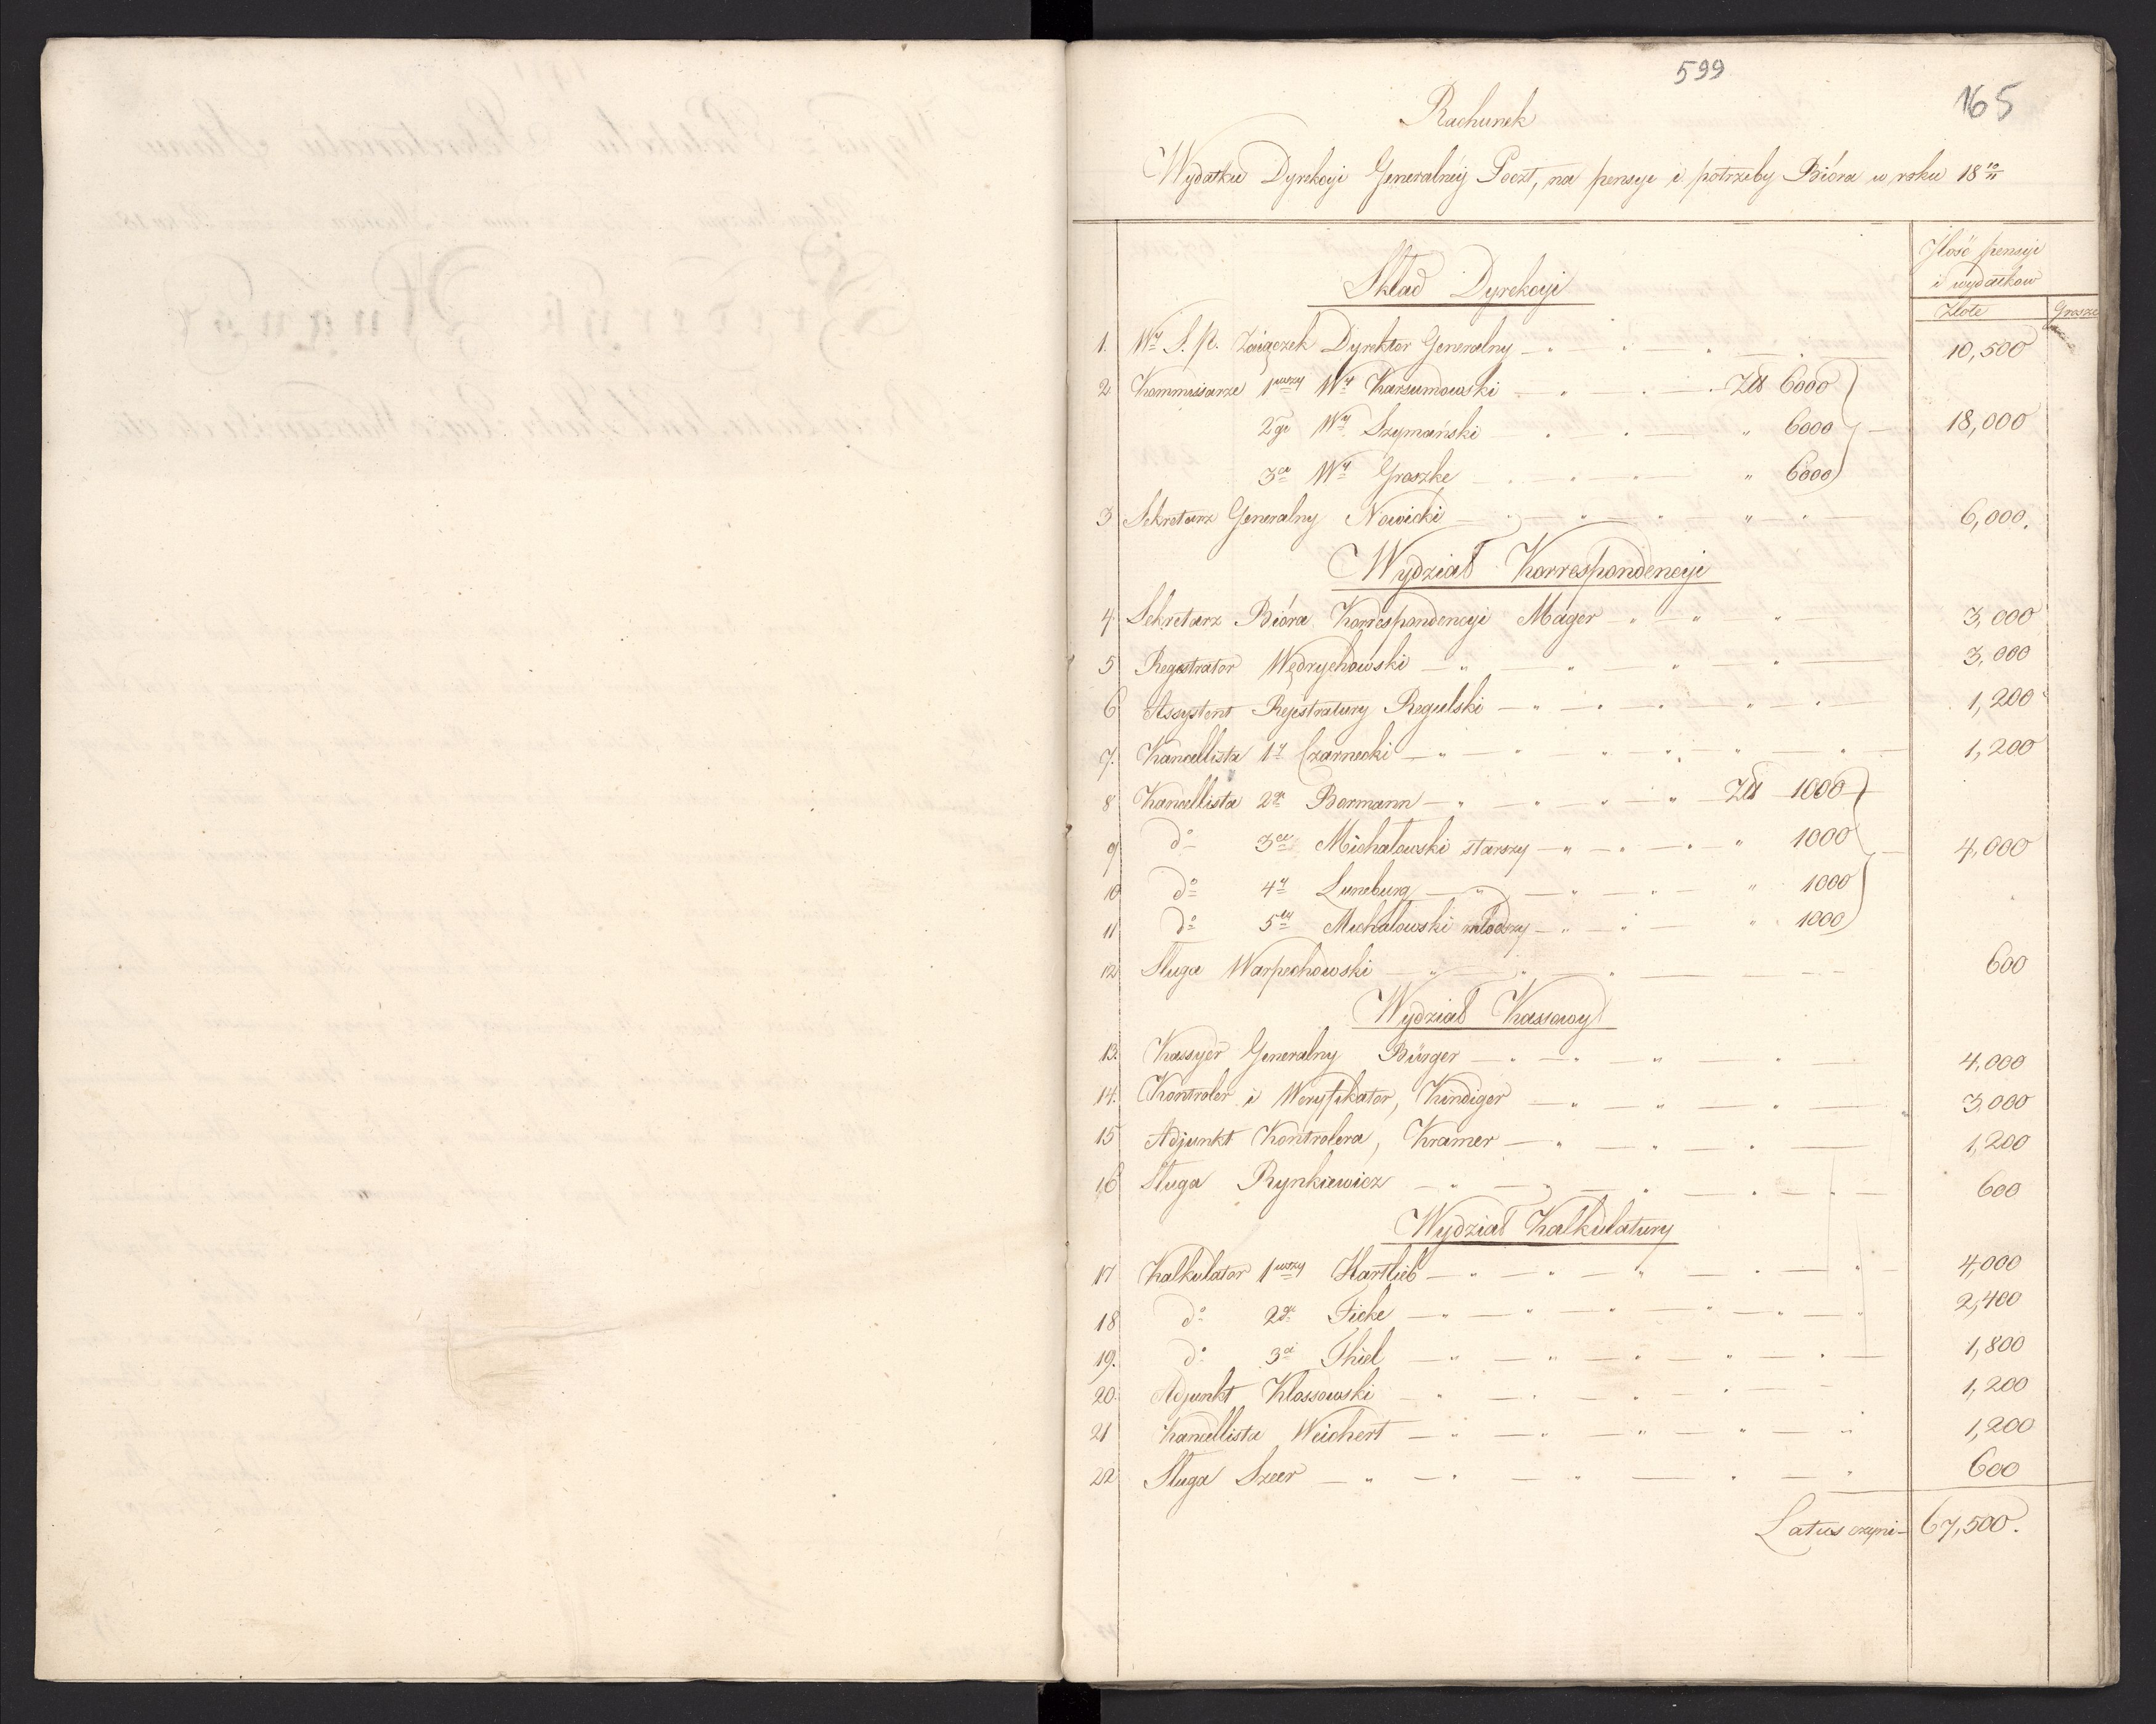 599
165
Rachunek
Wydatku Dyrekcyi Generalnéy Poczt, na pensye i potrzeby Bióra w roku 18 10/11
Ilość pensyi
i wydatkow
Złote Grosze
Skład Dyrekcyi
1. Wy S. P. Zaiączek Dyrektor Generalny 10,500
2 Kommissarze 1wszy Wy Karsumowski Złł 6000
2gi Wy Szymański " 6000 18,000
3ci Wy Groszke " 6000
3 Sekretarz Generalny Nowicki 6,000.
Wydział Korrespondencyi
4. Sekretarz Bióra Korrespondencyi Mager 3,000
5 Registrator Wędrychowski 3,000
6 Assystent Rejestratury Regulski 1,200
7. Kancellista 1y Czarnecki 1,200
8 Kancellista 2gi Bormann Złł 1000
9 do 3ci Michałowski starszy " 1000 4,000
10 do 4y Luneburg " 1000
11 do 5ty Michałowski młodszy " 1000
12 Sługa Warpechowski 600
Wydział Kassowy
13. Kassyer Generalny Bürger 4,000
14. Kontroler i Weryfikator, Kindiger 3,000
15 Adjunkt Kontrolera, Kramer 1,200
16 Sługa Rynkiewicz 600
Wydział Kalkulatury
17 Kalkulator 1wszy Hartlieb 4,000
18 do 2gi Ficke 2,400
19. do 3ci Thiel 1,800
20. Adjunkt Klossowski 1,200
21 Kancellista Weichert 1,200
22 Sługa Szeer 600
Latus czyni 67,500.